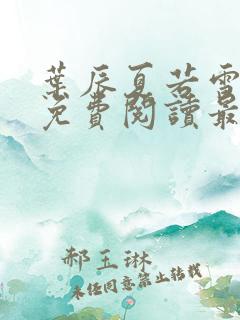 葉辰夏若雪
免費閱讀最
郝玉琳
未經同意禁止轉載